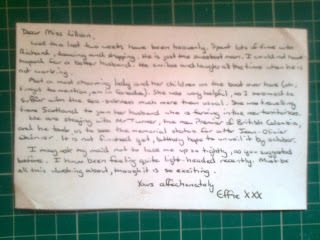 Dear Miss Lilian,
Well the last two weeks have been heavenly. Spent lots of time with
Richard, dancing and shopping. He is just the sweetest man. I could not have
hoped for a better husband. He smiles and laughs all the time when he is
not working.
Met a most charming lady and her children on the boat over here (oh,
I forgot to mention, am in). She was very helpful, as I seemed to
suffer with the sea-sickness much more than usual. She was travelling
from Scotland to join her husband who is farming in the new territories.
We are staying with Mr Turner, the new Premier of British Columbia,
and he took us to see the memorial statue for
. It is not finished yet, but they hope to unveil it by october.
I may ask my maid not to lace me up so tightly, as you suggested
before. I have been feeling quite light-headed recently. Must be
all this dashing about, though it is so exciting.
Yours affectionately
Effie XXX